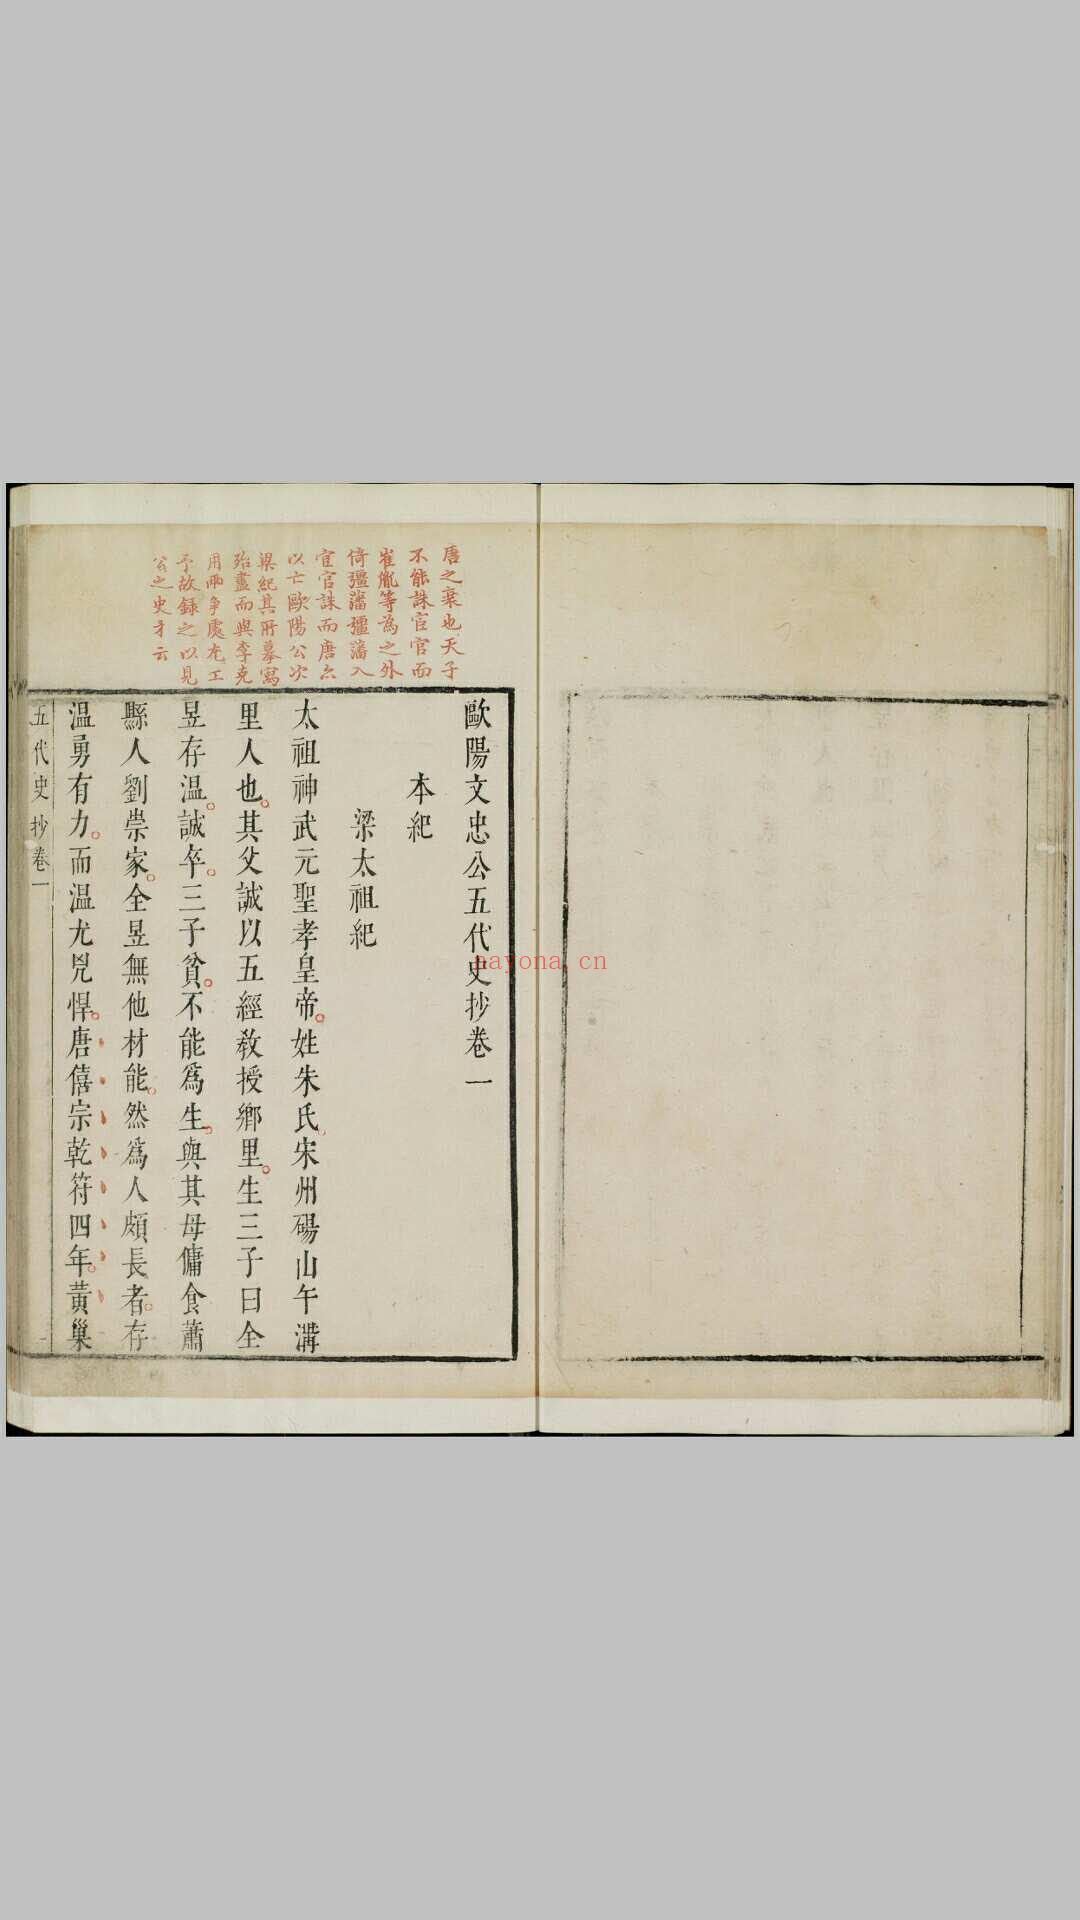 唐之衰也天子
不能誅宦官而
崔胤等爲之外
倚彊藩彊藩入
宦官誅而唐亦
以亡歐陽公次
梁紀其所摹寫
殆盡而與李克
用兩爭處尤工
予故錄之以見
公之史才云
歐陽文忠公五代史抄卷一
本紀
梁太祖紀
太祖神武元聖孝皇帝姓朱氏宋州碭山午溝
里人也其父誠以五經教授鄉里生三子曰全
昱存温誠卒三子貧不能爲生與其母傭食蕭
縣人劉崇家全昱無他材能然爲人頗長者存
温勇有力而温尤兇悍唐僖宗乾符四年黃巢
五代史抄卷一
一
aayona.cn